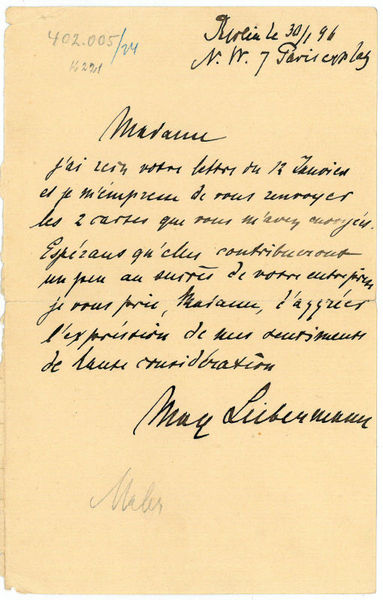 402.005/24
4221
Berlin le 30/1 96
N. W. 7 Pariserplatz
Madame
j'ai reçu votre lettre du 12 Janvier
et je m'empresse de vous renvoyer
les 2 cartes que vous m'avez envoyées.
Espérans qu'elles contribueront
un peu au succès de votre entreprise
je vous prie, Madame, d'aggréer
l'expréssion de mes sentiments
de haute considération
Max Liebermann
Maler